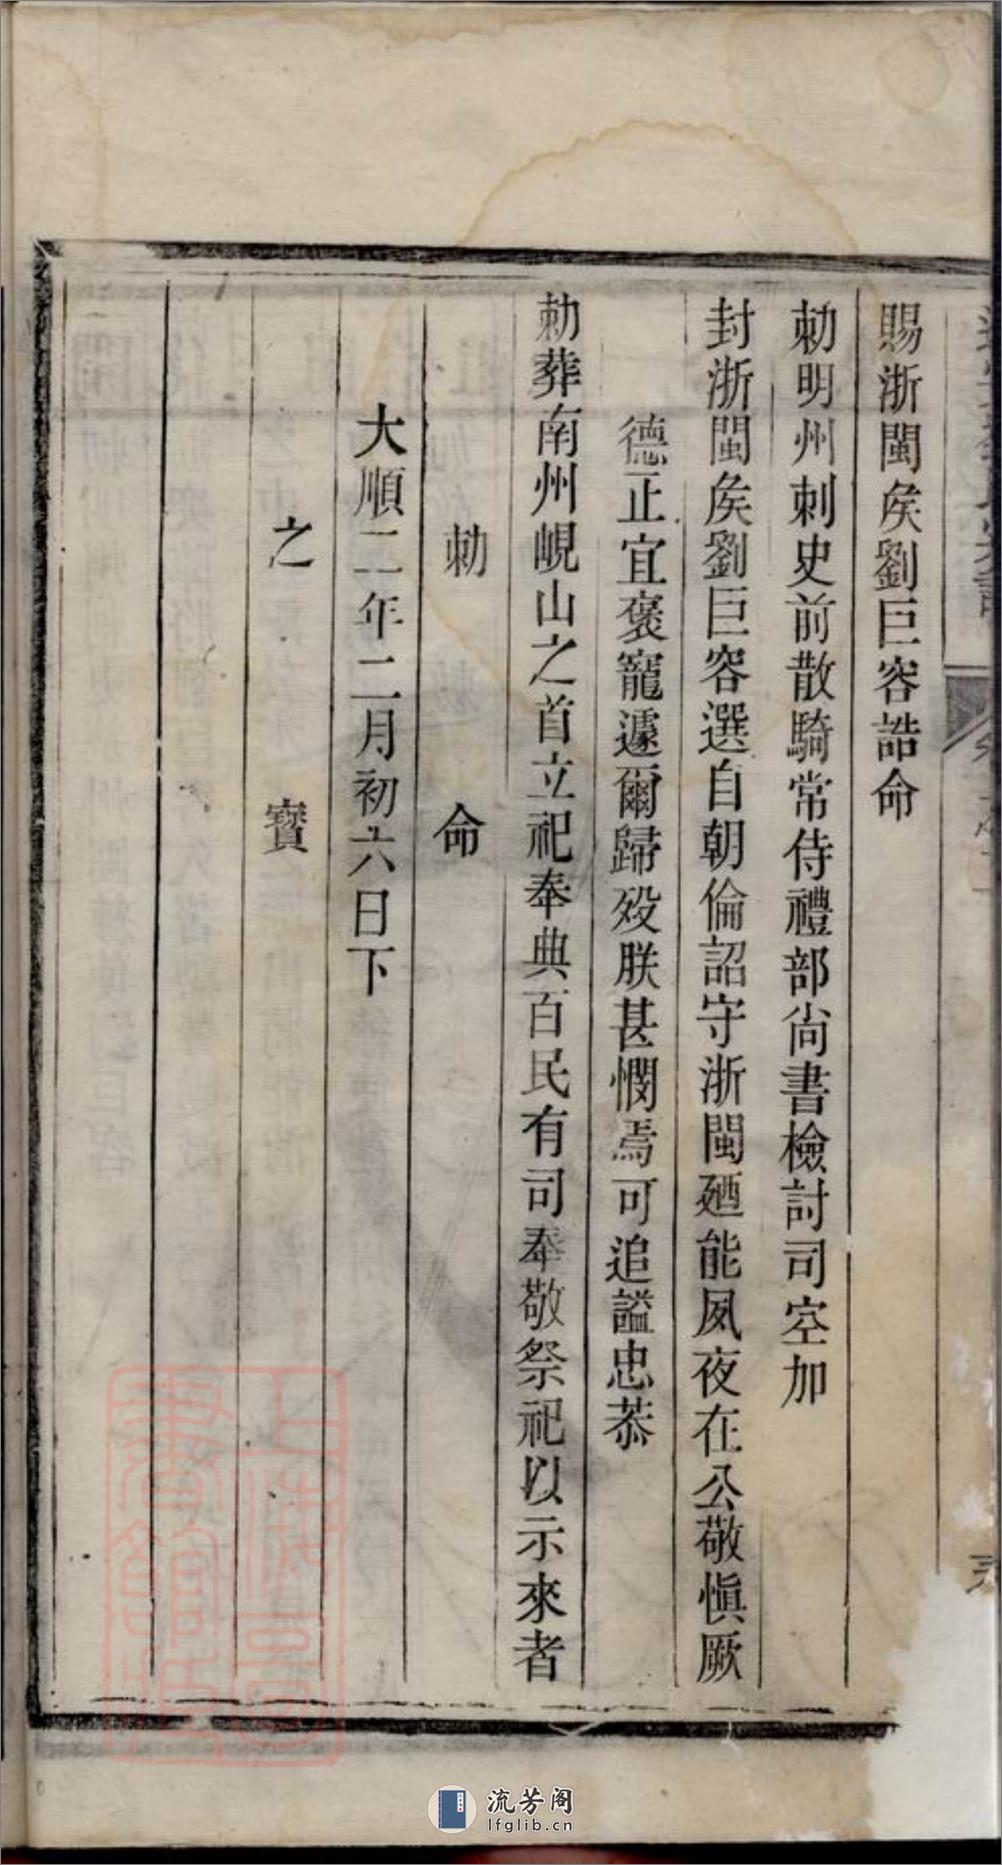 賜浙閩矦劉巨容誥命
勅明州刺史前散騎常侍禮部尚書檢討司空加
封浙閩矦劉巨容選自朝倫詔守浙閩廼能夙夜在公敬愼厥
德正宜褒寵遽爾歸歿朕甚憫焉可追謚忠恭
勅葬南州峴山之首立祀奉典百民有司奉敬祭祀以示來者
勅命
大順二年二月初六日下
之寶
上海圖書館藏
流芳阁
lfglib.cn